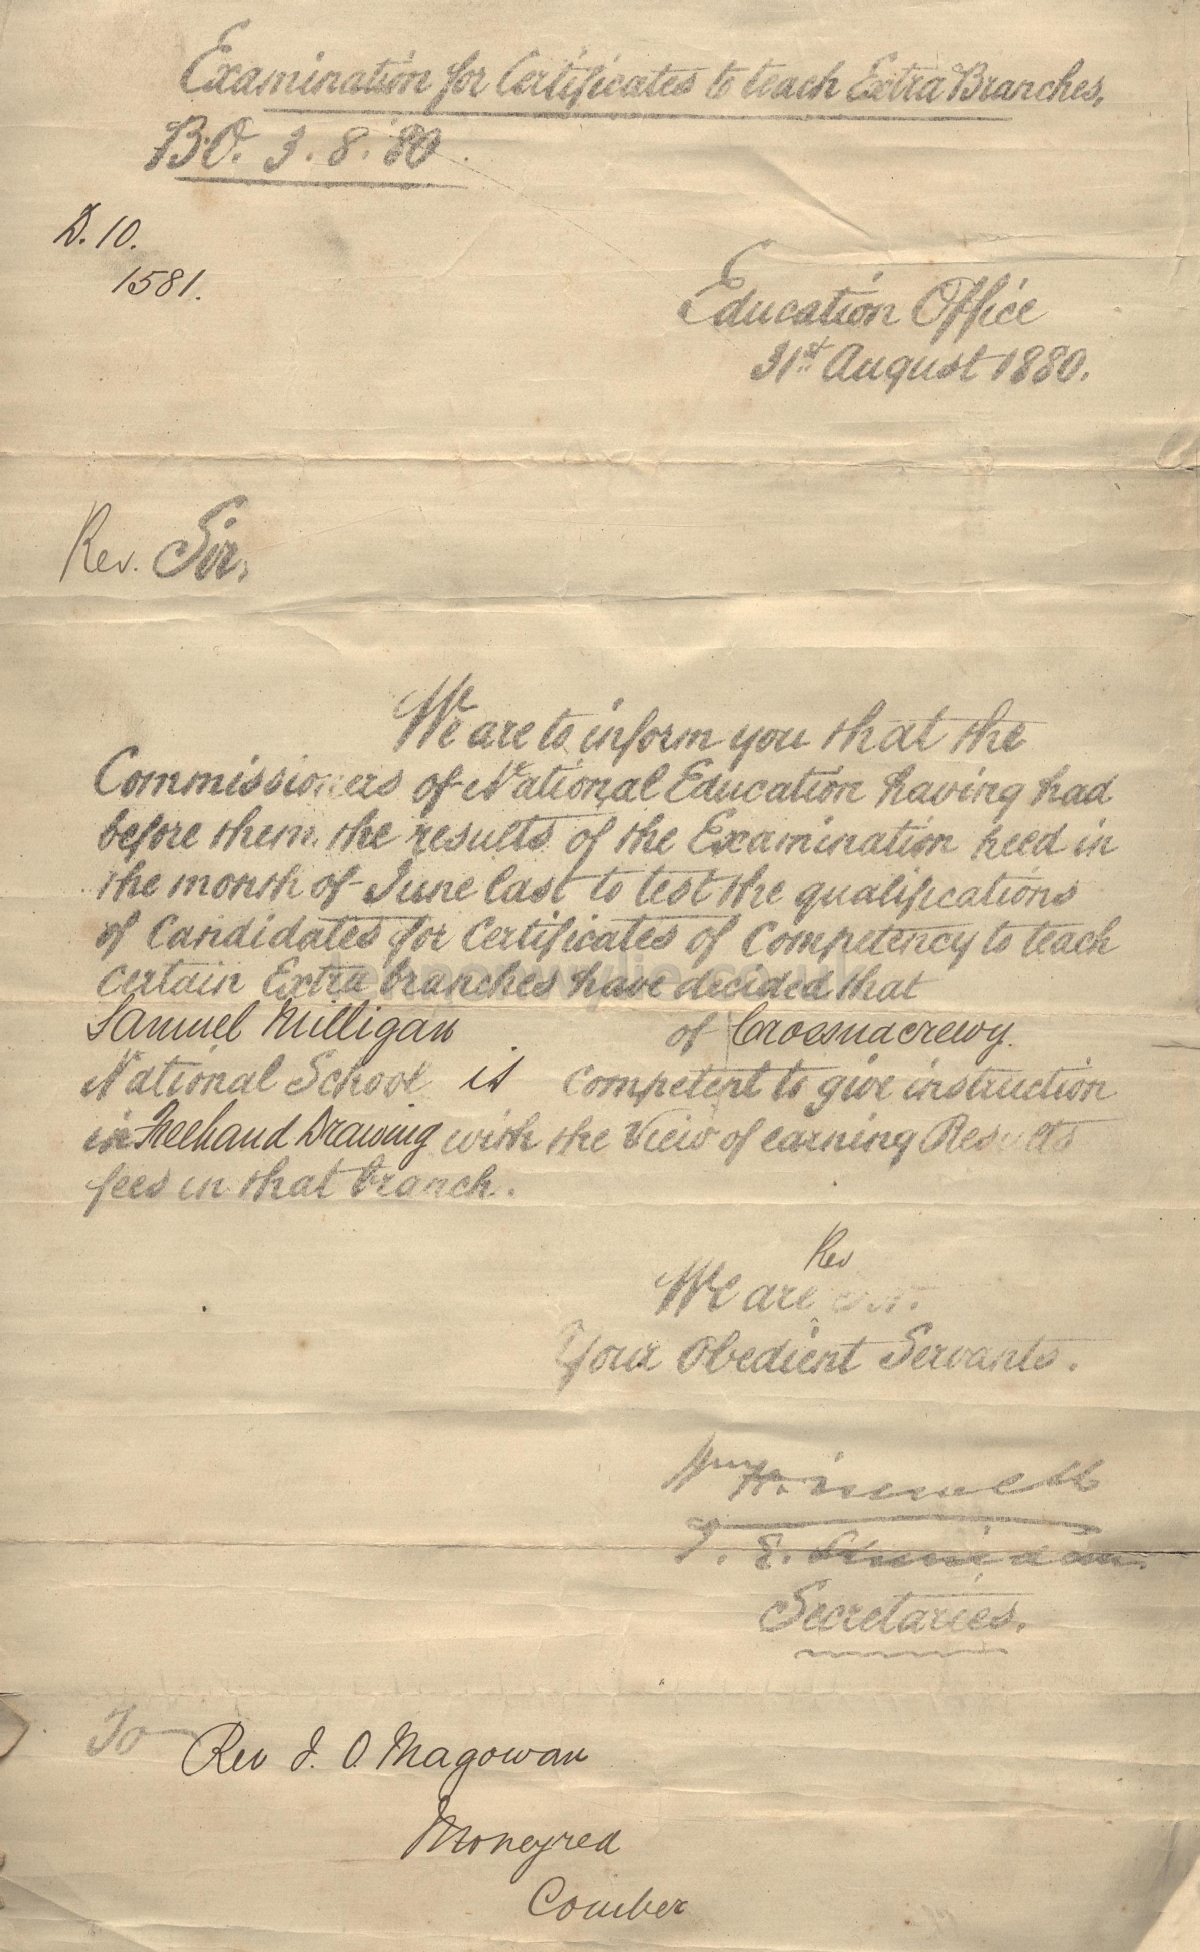 Examination for Certificates to teach Extra Branches.
B.O. 3.8.80.
D. 10.
1581.
Education Office
31st August 1880.
Rev. Sir,
We are to inform you that the
Commissioners of National Education having had
before them the results of the Examination held in
the month of June last to test the qualifications
of Candidates for Certificates of Competency to teach
certain Extra branches have decided that
Samuel Milligan of Crossnacreevy
National School is competent to give instruction
in Freehand Drawing with the View of earning Results
fees in that branch.
Rev
We are Sir.
Your Obedient Servants.
Wm H. Newell
Secretaries.
To Rev J. O. Magowan
Moneyrea
Comber